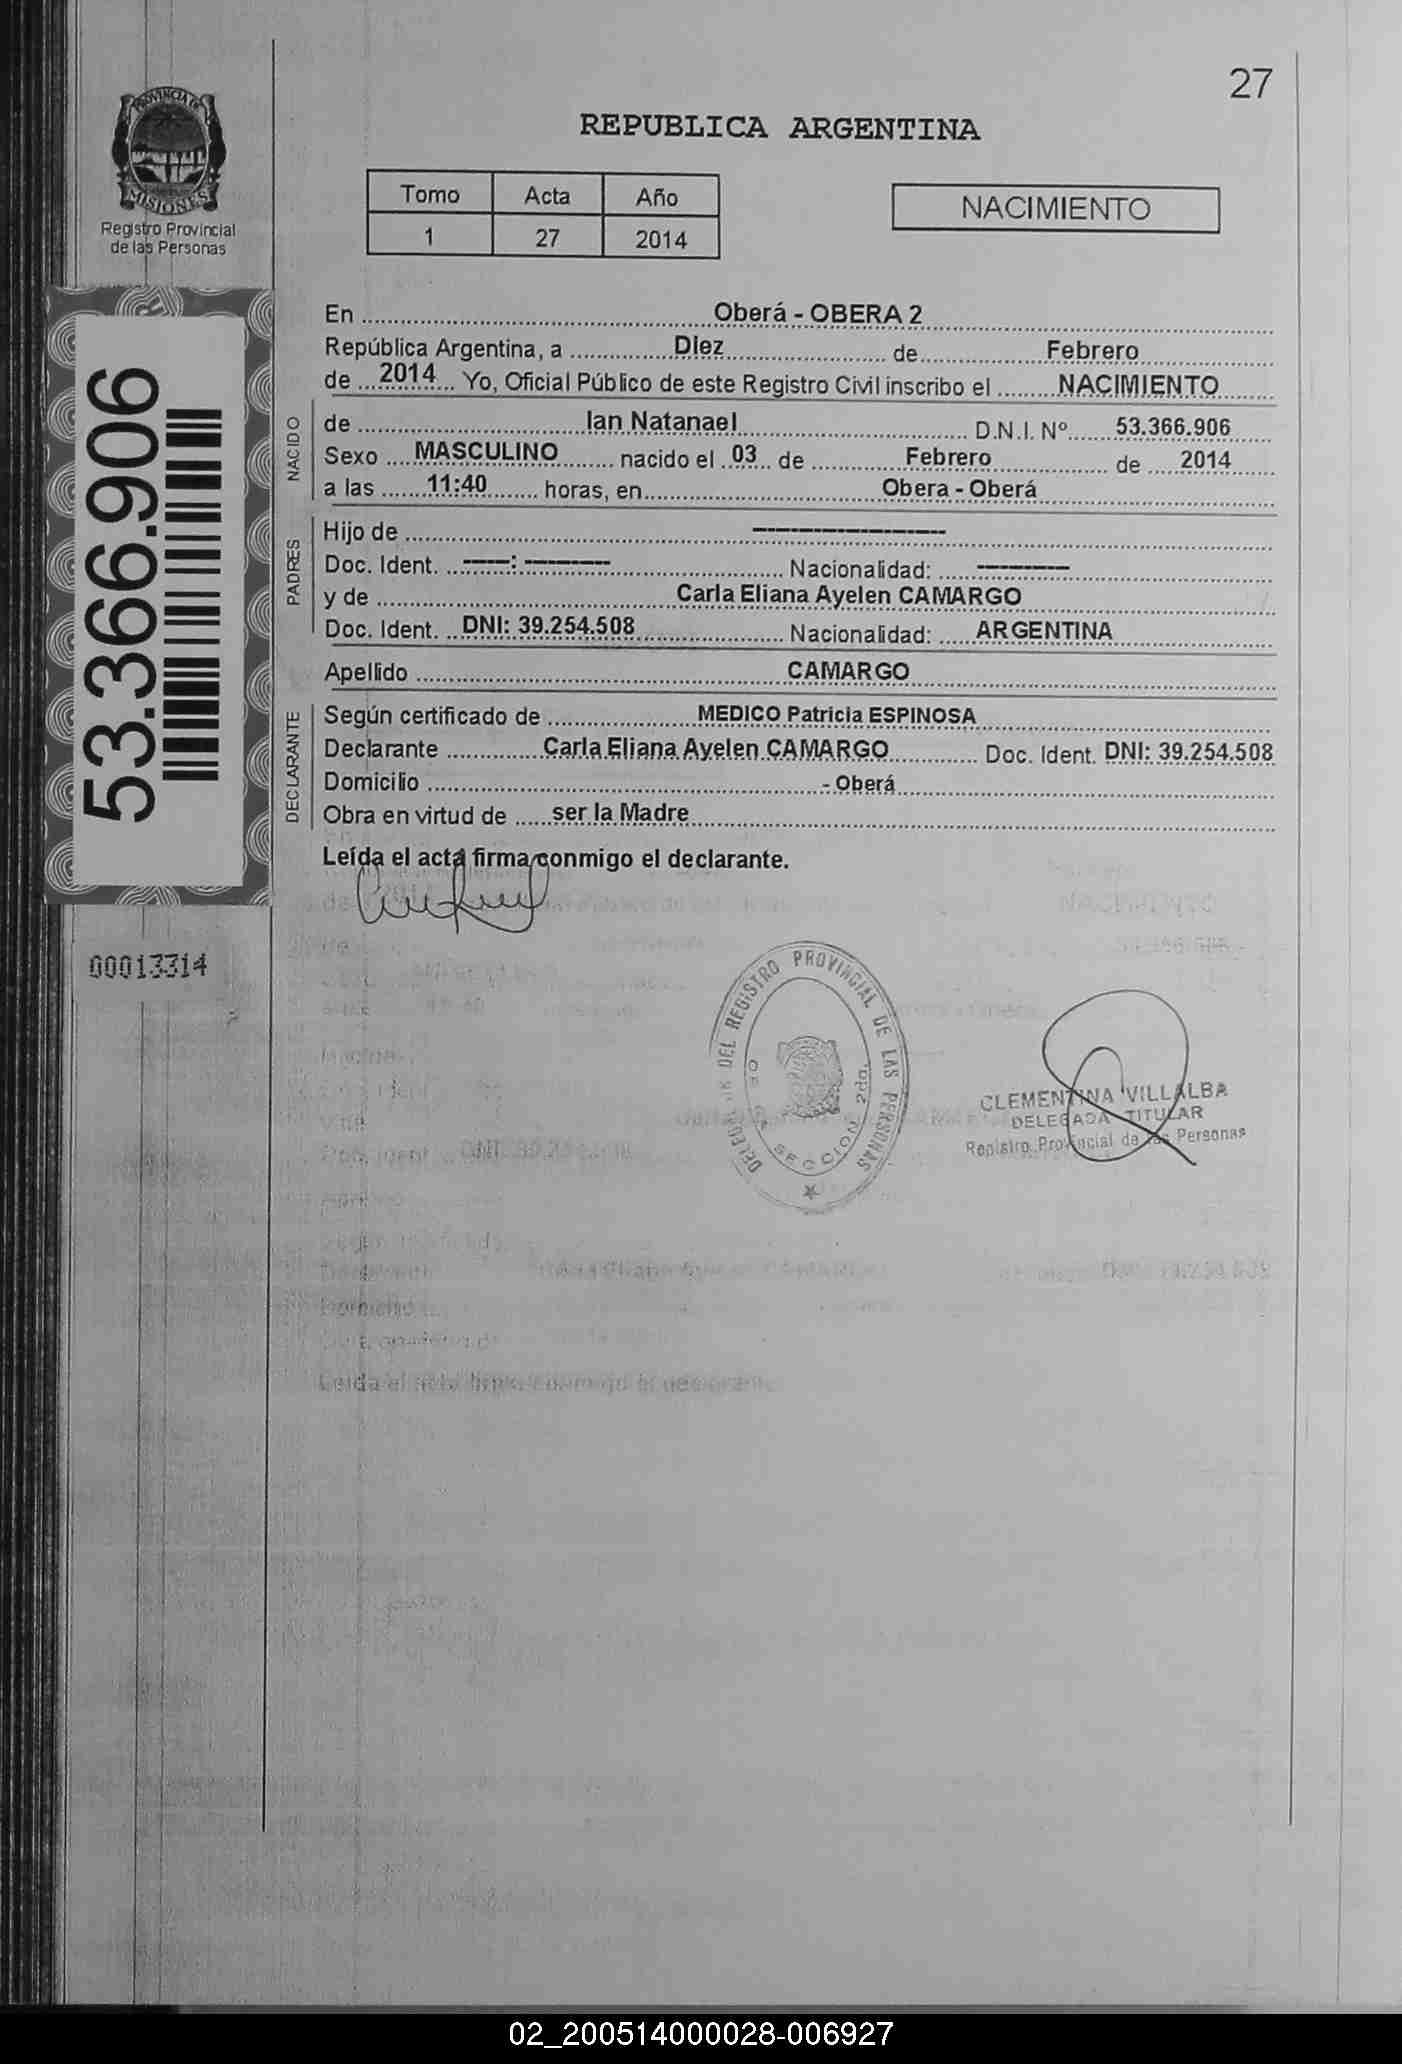 27
REPUBLICA ARGENTINA
PROVINCIA DE
MISIONES
Registro Provincial
de las Personas
Tomo Acta Año
1 27 2014
NACIMIENTO
53.366.906
En Oberá - OBERA 2
República Argentina, a Diez de Febrero
de 2014 Yo, Oficial Público de este Registro Civil inscribo el NACIMIENTO
NACIDO
de Ian Natanael D.N.I. Nº 53.366.906
Sexo MASCULINO nacido el 03 de Febrero de 2014
a las 11:40 horas, en Obera - Oberá
PADRES
Hijo de --------------------
Doc. Ident. -----: --------- Nacionalidad: ----------
y de Carla Eliana Ayelen CAMARGO
Doc. Ident. DNI: 39.254.508 Nacionalidad: ARGENTINA
Apellido CAMARGO
DECLARANTE
Según certificado de MEDICO Patricia ESPINOSA
Declarante Carla Eliana Ayelen CAMARGO Doc. Ident. DNI: 39.254.508
Domicilio - Oberá
Obra en virtud de ser la Madre
Leída el acta firma conmigo el declarante.
00013314
DEL REGISTRO PROVINCIAL DE LAS PERSONAS
SECCION 2da.
CLEMENTINA VILLALBA
DELEGADA TITULAR
Registro Provincial de las Personas
02_200514000028-006927